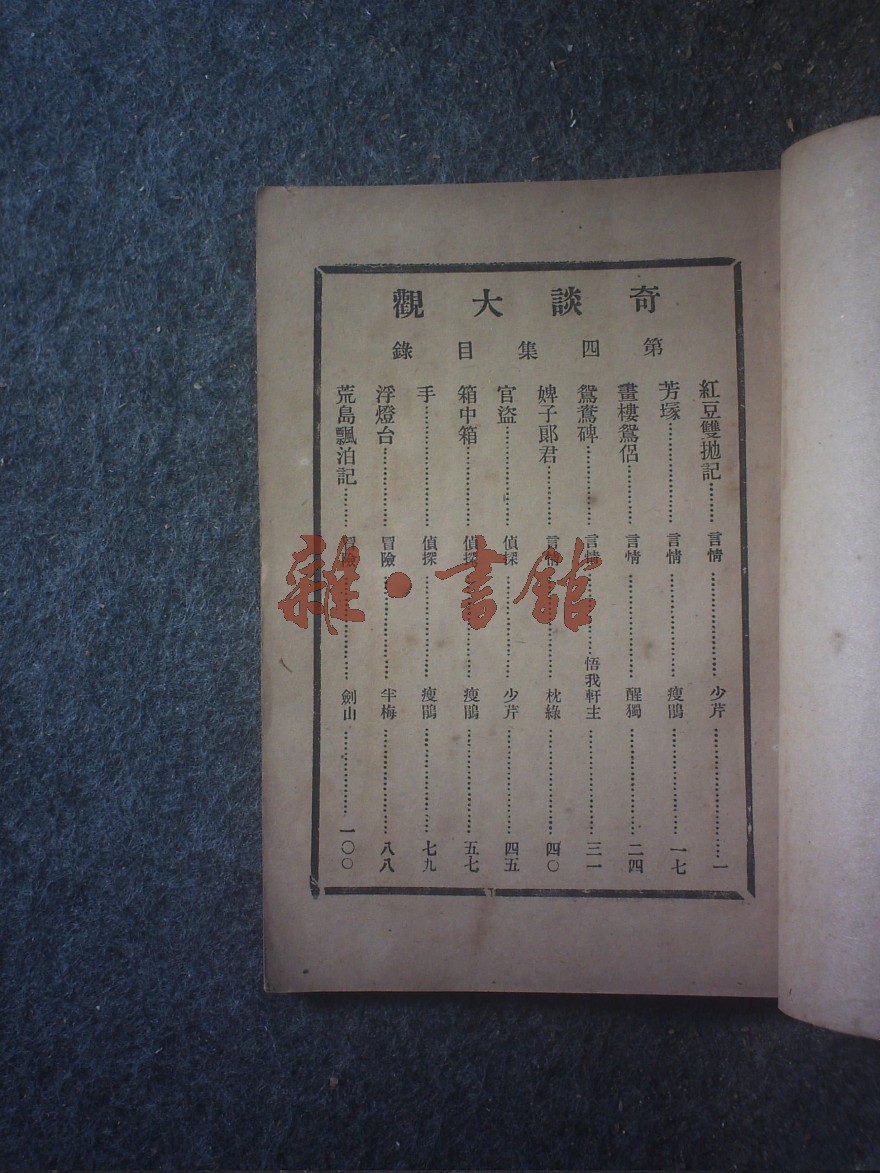 奇談大觀
第四集目錄
紅豆雙拋記………言情………少芹………一
芳塚………言情………瘦鵑………一七
畫樓鴛侶………言情………醒獨………二四
鴛鴦碑………言情………悟我軒主………三一
婢子郞君………言情………枕綠………四〇
官盜………偵探………少芹………四五
箱中箱………偵探………瘦鵑………五七
手………偵探………瘦鵑………七九
浮燈台………冒險………半梅………八八
荒島飄泊記………冒險………劍山………一〇〇
雜·書館